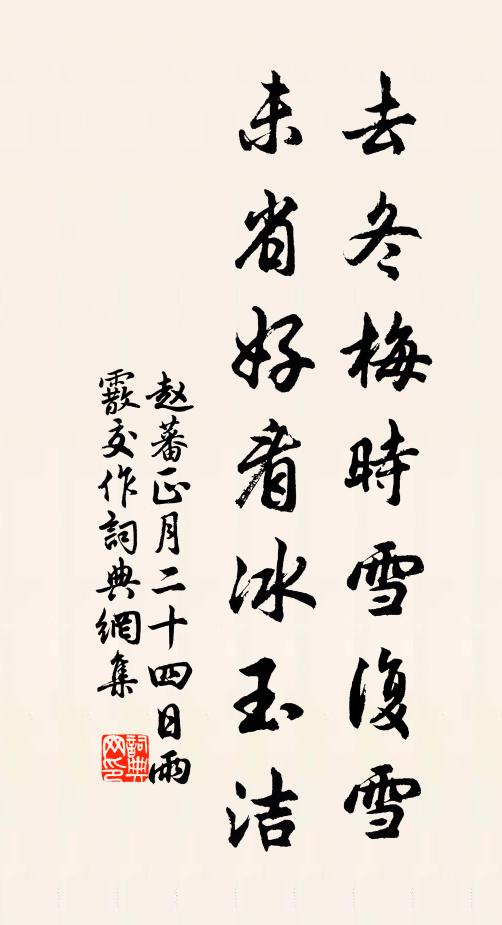 去冬梅時雪復雪
未省好看冰玉洁
赵蕃正月二十四日雨
霰交作詞典網集
詞典网印